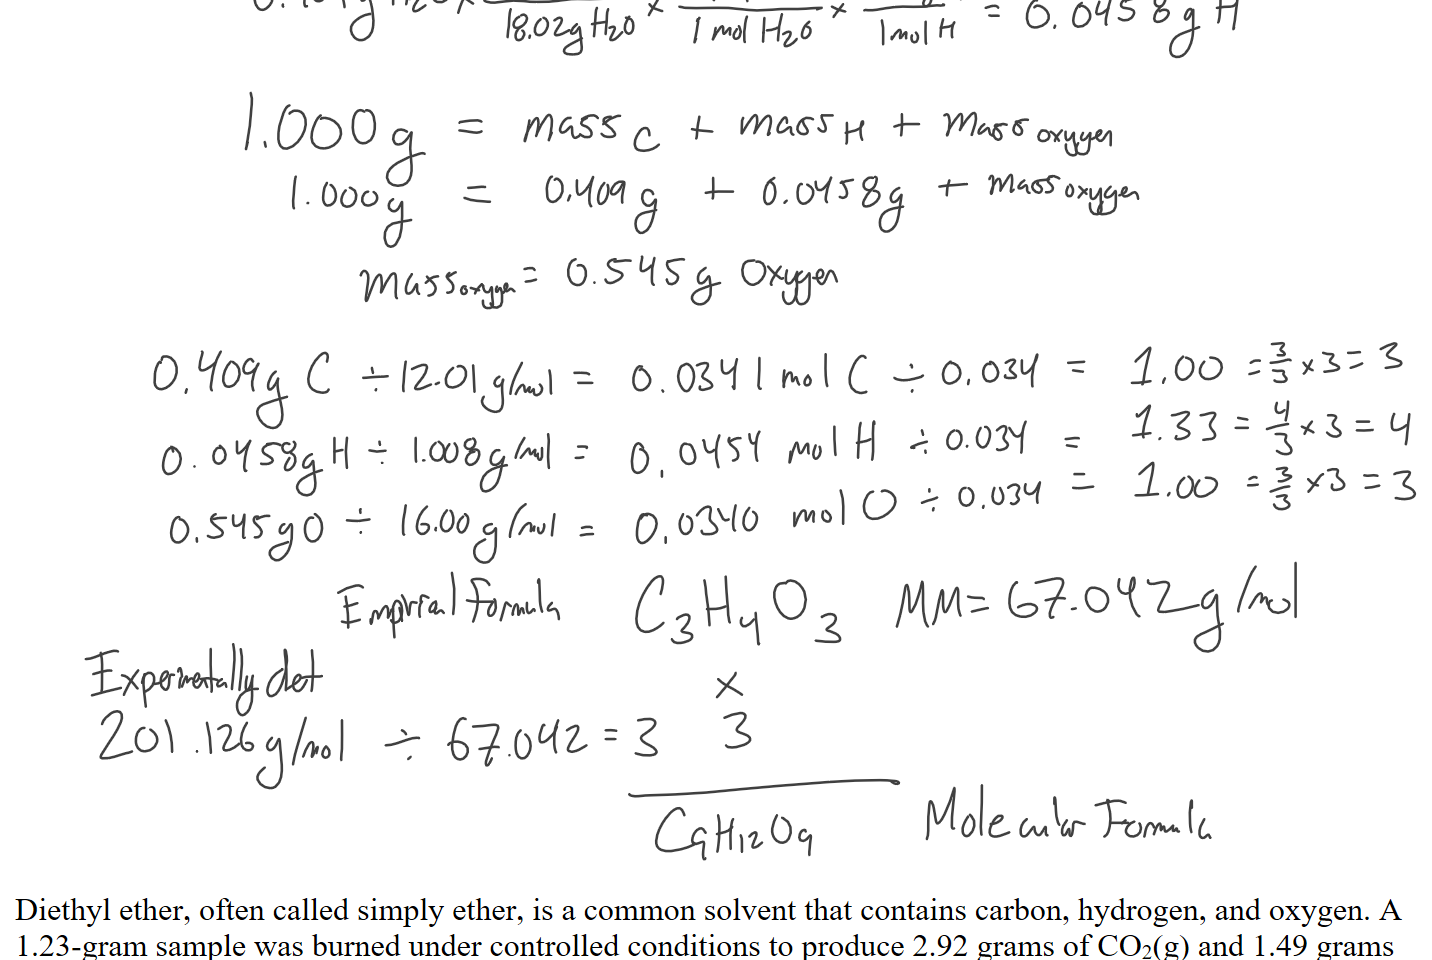 18.02g H2O × 1 mol H2O × 1 mol H = 0.0458 g H
1.000g = mass C + mass H + mass oxygen
1.000g = 0.409g + 0.0458g + mass oxygen
mass oxygen = 0.545g Oxygen
0.409g C ÷ 12.01 g/mol = 0.0341 mol C ÷ 0.034 = 1.00 = 3/3 × 3 = 3
0.0458g H ÷ 1.008g/mol = 0.0454 mol H ÷ 0.034 = 1.33 = 4/3 × 3 = 4
0.545g O ÷ 16.00 g/mol = 0.0340 mol O ÷ 0.034 = 1.00 = 3/3 × 3 = 3
Empirical formula C3H4O3 MM= 67.042g/mol
Experimentally det ×
201.126g/mol ÷ 67.042 = 3 3
C9H12O9 Molecular Formula
Diethyl ether, often called simply ether, is a common solvent that contains carbon, hydrogen, and oxygen. A
1.23-gram sample was burned under controlled conditions to produce 2.92 grams of CO2(g) and 1.49 grams